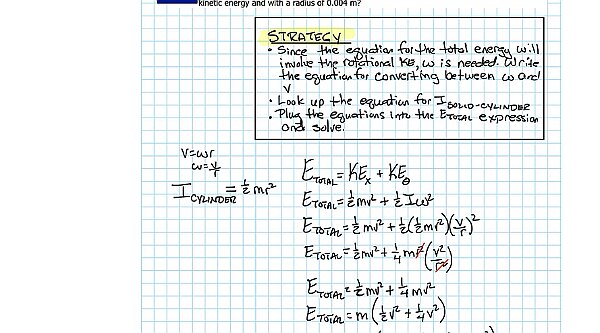 kinetic energy and with a radius of 0.004 m?
STRATEGY
• Since the equation for the total energy will
involve the rotational KE, ω is needed. Write
the equation for converting between ω and
v
• Look up the equation for I SOLID-CYLINDER
• Plug the equations into the E TOTAL expression
and solve.
V=ωr
ω=v/r
I CYLINDER = ½ mr²
E TOTAL = KE x + KE θ
E TOTAL = ½ mv² + ½ Iω²
E TOTAL = ½ mv² + ½(½ mr²)(v/r)²
E TOTAL = ½ mv² + ¼ mr²(v²/r²)
E TOTAL = ½ mv² + ¼ mv²
E TOTAL = m(½v² + ¼v²)